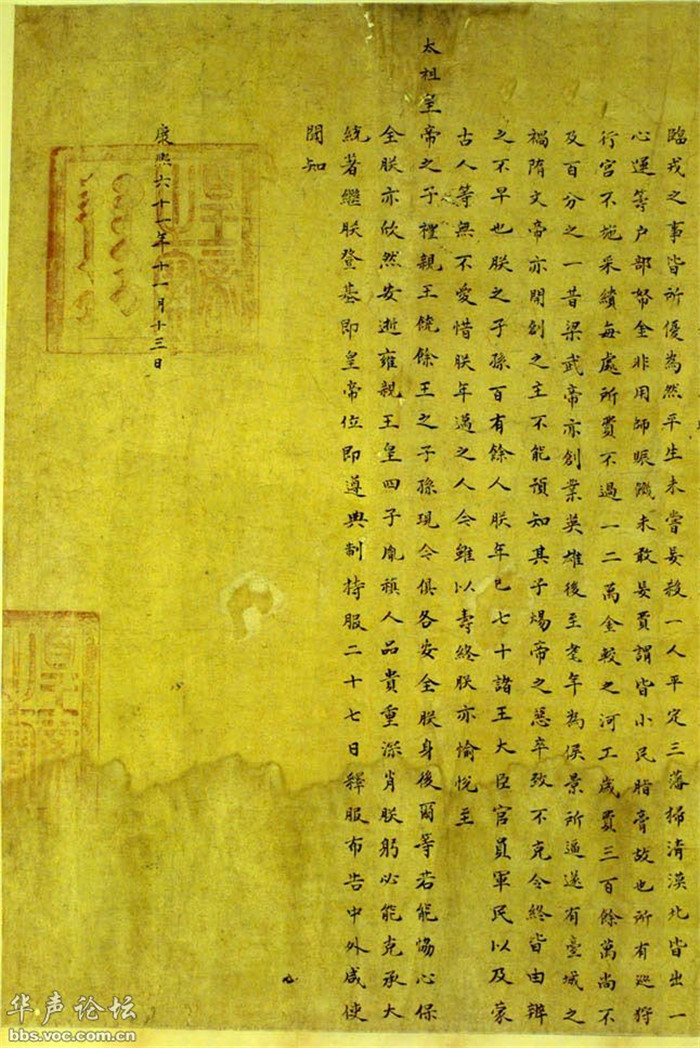 臨戎之事皆所優為然平生未嘗妄殺一人平定三藩掃清漠北皆出一
心運等户部帑金非用師賑饑未敢妄費謂皆小民脂膏故也所有巡狩
行宫不施采繢每處所費不過一二萬金較之河工歲費三百餘萬尚不
及百分之一昔梁武帝亦創業英雄後至耄年為侯景所逼遂有臺城之
禍隋文帝亦開創之主不能預知其子煬帝之惡卒致不克令終皆由辨
之不早也朕之子孫百有餘人朕年已七十諸王大臣官員軍民以及蒙
古人等無不愛惜朕年邁之人今雖以壽終朕亦愉悦至
太祖皇帝之子禮親王饒餘王之子孫現今俱各安全朕身後爾等若能協心保
全朕亦欣然安逝雍親王皇四子胤禛人品貴重深肖朕躬必能克承大
統著繼朕登基即皇帝位即遵典制持服二十七日釋服布告中外咸使
聞知
康熙六十一年十一月十三日
华声论坛
bbs.voc.com.cn